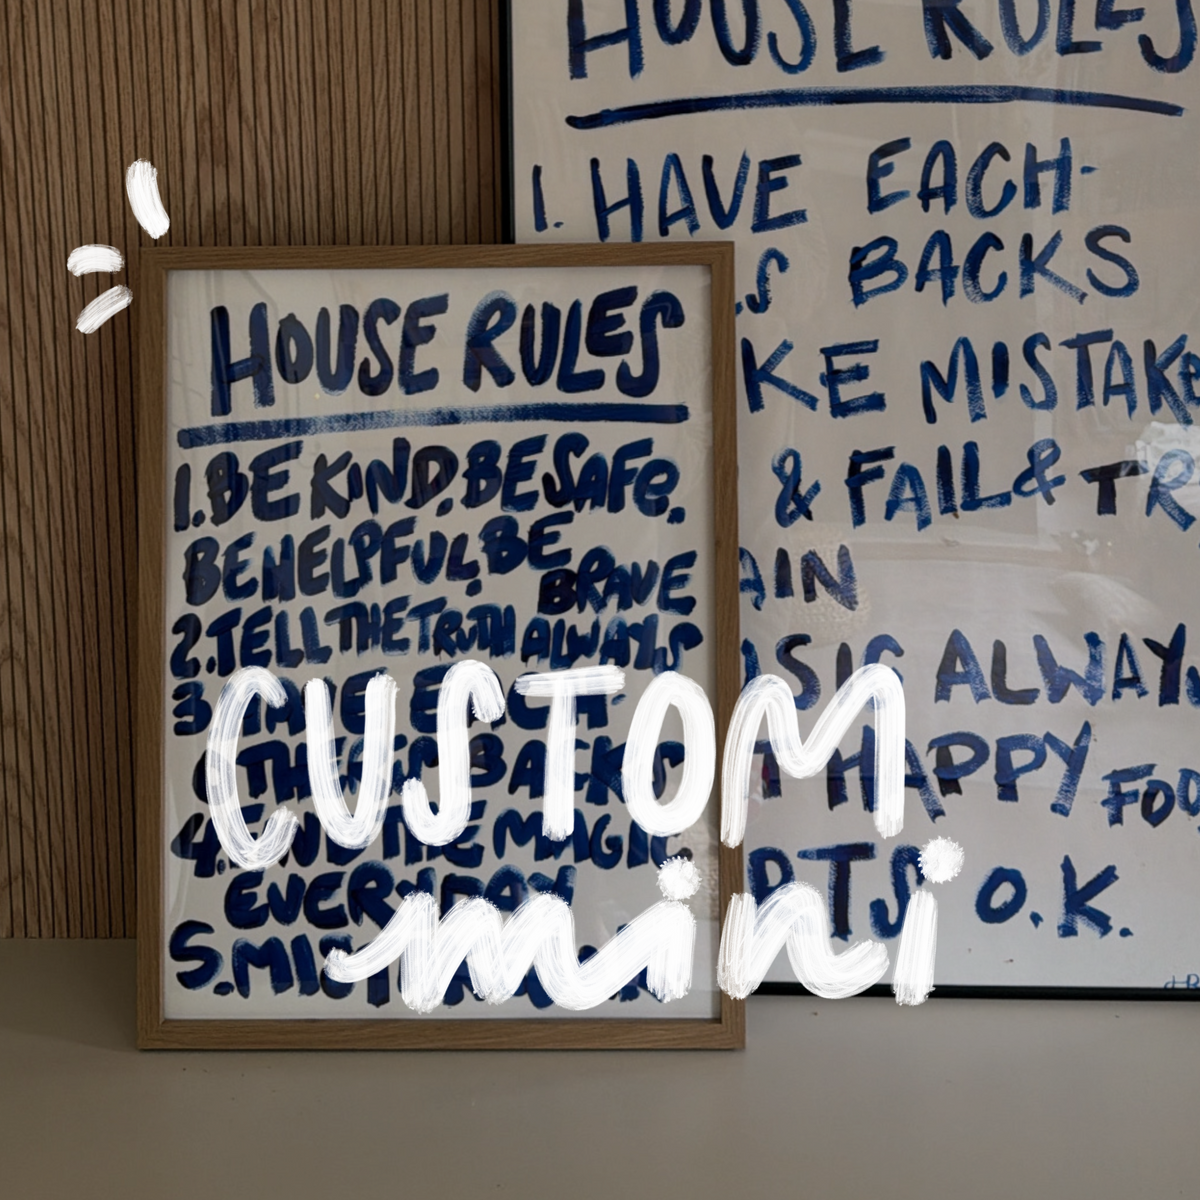 HOUSE RULES
1. BE KIND. BE SAFE.
BE HELPFUL. BE
BRAVE
2. TELL THE TRUTH ALWAYS
3. HAVE EACH
BACKS
4. FIND THE MAGIC
EVERYDAY
5.
CUSTOM
mini
HOUSE RULES
1. HAVE EACH-
BACKS
MISTAKE
& FAIL & TR
AIN
ALWAYS
HAPPY
FOO
O.K.